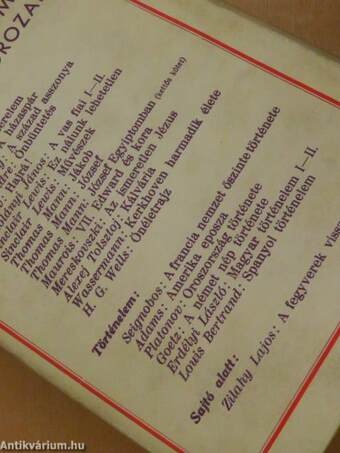 M
OROZA
erelem
A házaspár
század asszonya
Hajrá
Önbüntetés
János: A vas fiai I—II.
Sinclair Lewis: Ez nálunk lehetetlen
Sinclair Lewis: Művészek
Thomas Mann: Jákob
Thomas Mann: József
Thomas Mann: József Egyiptomban (kettős kötet)
Maurois: VII. Edward és kora
Mereskovszkij: Az ismeretlen Jézus
Alexej Tolsztoj: Kálvária
Wassermann: Kerkhoven harmadik élete
H. G. Wells: Önéletrajz
Történelem:
Seignobos: A francia nemzet őszinte története
Adams: Amerika eposza
Platonov: Oroszország története
Goetz: A német nép története
Erdélyi László: Magyar történelem I—II.
Louis Bertrand: Spanyol történelem
Sajtó alatt:
Zilahy Lajos: A fegyverek vissz
Antikvárium.hu